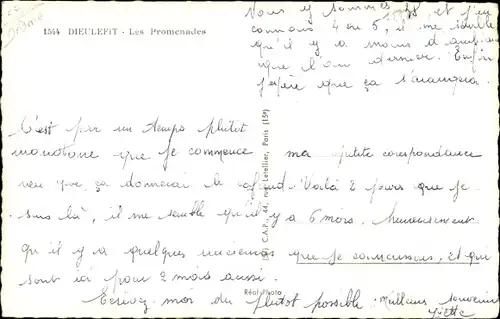 Drôme
1544 DIEULEFIT - Les Promenades
C'est par un temps plutôt
monotone que je commence ma petite corespondance
veu que ça donnerai le cafard. Voilà 2 jours que je
suis là, il me semble qu'il y a 6 mois. Heureusement
qu'il y a quelques anciennes que je connaissais, et qui
sont ici pour 2 mois aussi.
Ecrivez moi du plutot possible. Meilleurs souvenirs
Yvette
Vous y sommes 48 et j'en
connais 4 ou 5, il me semble
qu'il y a moins d'ambiance
que l'an dernier. Enfin
j'espère que ça s'arrangera
C.A.P., 44, rue Letellier, Paris (15e)
Réal-Photo